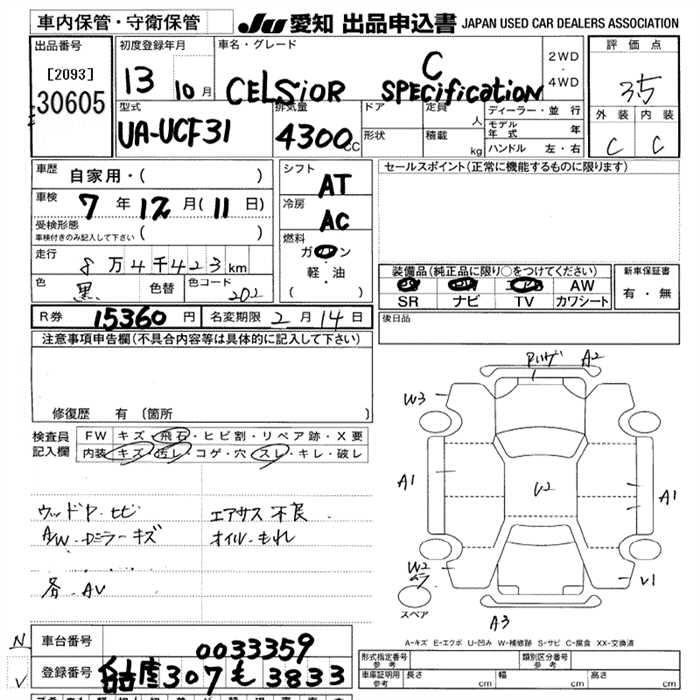 車内保管・守衛保管
JU 愛知 出品申込書 JAPAN USED CAR DEALERS ASSOCIATION
出品番号
[2093]
30605
初度登録年月
13 10月
車名・グレード
CELSIOR C SPECification
2WD
・
4WD
評価点
3.5
外装 内装
C C
型式
UA-UCF31
排気量
4300cc
ドア
形状
定員 人
積載 kg
ディーラー・並行
モデル年式 年
ハンドル 左・右
車歴 自家用・( )
車検 7年12月(11日)
受検形態
車検付きのみ記入して下さい ( )
走行 8万4千423km
色 黒 色替 色コード 202
シフト AT
冷房 AC
燃料
ガソリン
・
軽・油
( )
セールスポイント(正常に機能するものに限ります)
装備品(純正品に限り○をつけてください)
AW
SR ナビ TV カワシート
新車保証書
有・無
後日品
R券 15360円 名変期限 2月14日
注意事項申告欄(不具合内容等は具体的に記入して下さい)
修復歴 有 (箇所 )
検査員
記入欄
FW キズ・飛石・ヒビ割・リペア跡・X要
内装 キズ・汚レ・コゲ・穴・スレ・キレ・破レ
ウッドP・ヒビ
A/W・Dミラーキズ
各・AV
エアサス不良
オイル・もれ
A2
W3
A1
U2
A1
W2
V1
スペア
A3
A-キズ E-エクボ U-凹み W-補修跡 S-サビ C-腐食 XX-交換済
N
V
車台番号 0033359
登録番号 名古屋307も3833
形式指定番号
参考
類別区分番号
参考
車庫証明用
参考
長さ cm
幅 cm
高さ cm